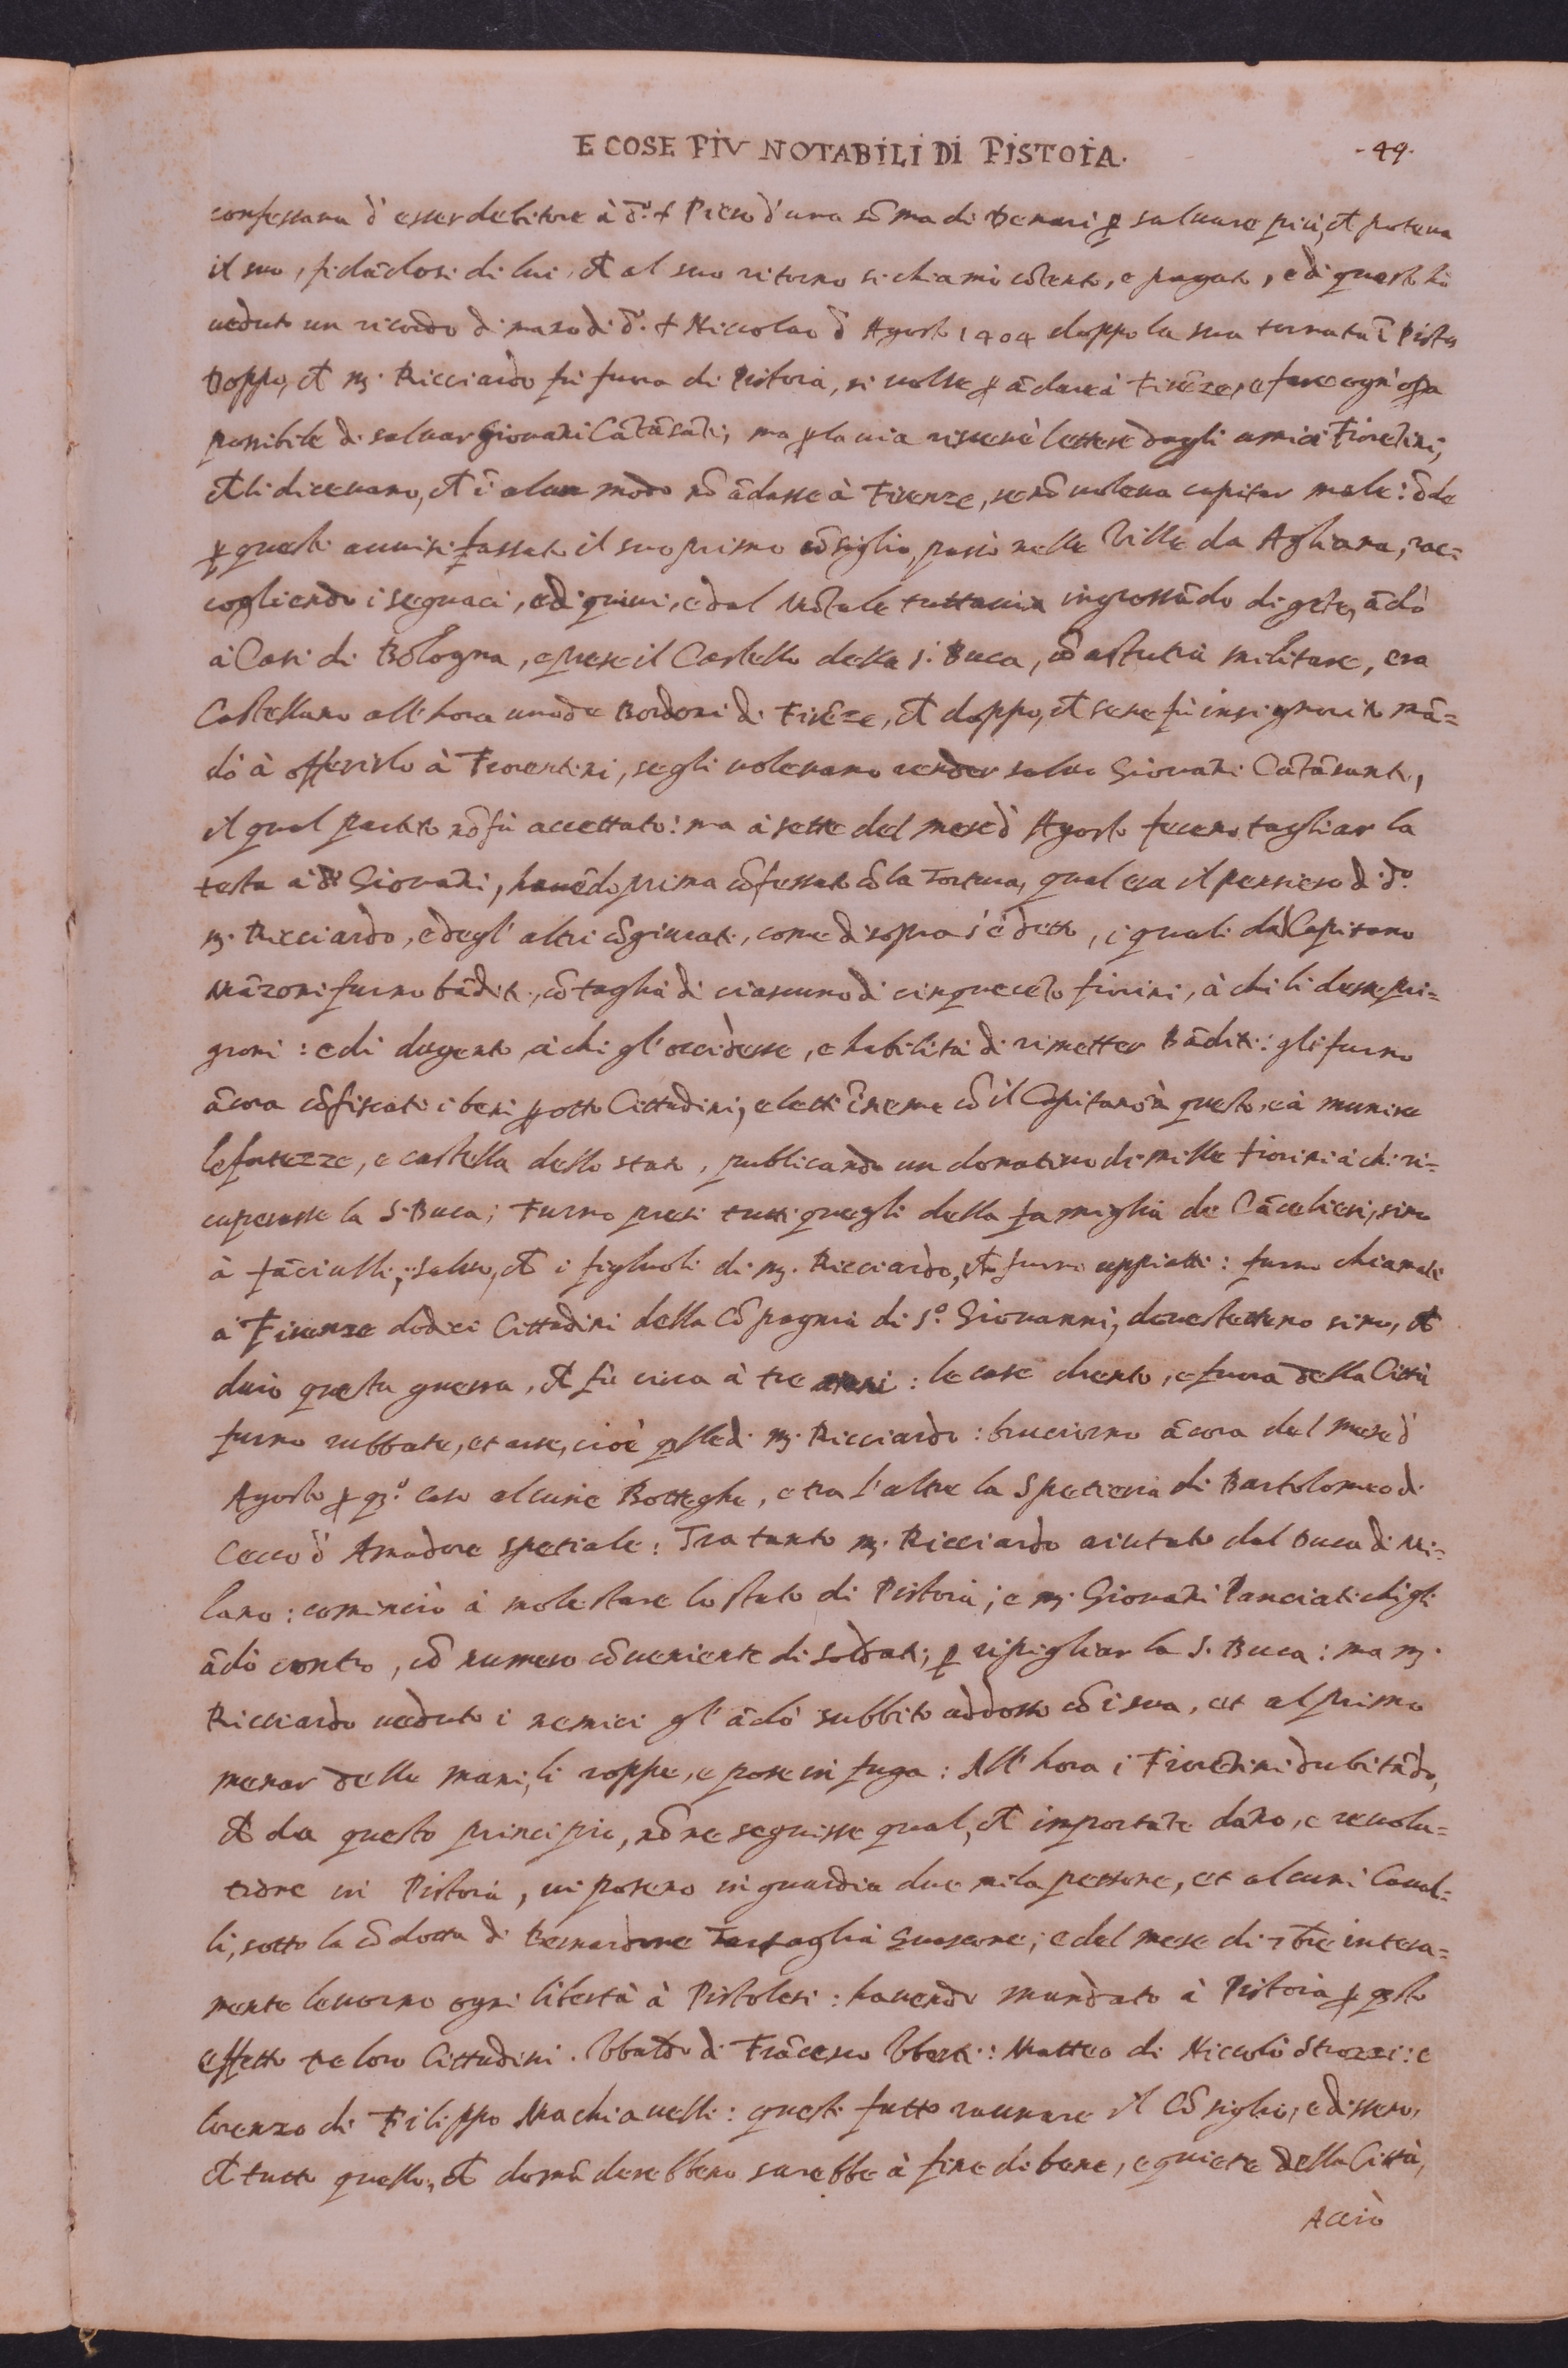 E COSE PIV NOTABILI DI PISTOIA.
-49-
confessava d'esser debitore à d.º f Piero d'una sõma di Denari ꝑ salvare più, cħ poteva
il suo, fidãdosi di lui, cħ al suo ritorno si chiamò cõtento, e pagato, e di questo hò
veduto un ricordo di mano di d.º f Niccolao d'Agosto 1404 doppo la sua tornata ĩ Pistoia
Doppo, cħ m. Ricciardo fù fuora di Pistoia, si volse ꝑ ãdare à Firẽze, e fare ogn'opa
possibile di salvar Giovãni Cãtãsãti; ma ꝑ la via ricevè lettere dagli amici Fiorẽtini,
cħ li dicevano, cħ ĩ alcun modo nõ ãdasse à Firenze, se nõ voleva capitar male: õde
ꝑ questi avvisi lassato il suo primo cõsiglio, passò nelle Ville da Agliana, rac=
cogliendo i seguaci, e di quivi, e dal Mõtale tuttavia ingrossãdo di gẽte, ãdò
à Casi di Bologna, e prese il Castello della S. Buca, cõ astutia militare, era
Castellano all'hora uno de Bordoni di Firẽze, cħ doppo, cħ se ne fù insignorito mã=
dò à offerirlo à Fiorentini, se gli volevano render salvo Giovãni Cãtãsanti,
il qual partito nõ fù accettato: ma à sette del mese d'Agosto fecero tagliar la
testa à d.º Giovãni, havẽdo prima cõfessato cõ la Tortura, qual era il pensiero di d.º
m. Ricciardo, e degl'altri cõgiurati, come di sopra s'è detto, i quali dal Capitano
Mãzoni furno bãditi, cõ taglia di ciascuno di cinquecẽto fiorini, à chi li desse pri=
gioni: e di dugento, à chi gl'occidesse, e habilità di rimetter Bãditi: gli furno
ãcora cõfiscati i beni ꝑ otto Cittadini, eletti ĩsieme cõ il Capitano à questo, e à munire
le fortezze, e castella dello stato, publicando un donativo di mille fiorini à chi ri=
cuperasse la S. Buca; Furno presi tutti quegli della famiglia de Cãcelieri, sino
à fãciulli, salvo, cħ i figliuoli di m. Ricciardo, cħ furno appiatti: furno chiamati
à Firenze dodici Cittadini della Cõpagnia di S.º Giovanni, dove stettero sino, cħ
durò questa guerra, cħ fù circa à tre anni: le case drento, e fuora della Città
furno rubbate, et arse, cioè qlle di m. Ricciardo: bruciorno ãcora del mese d'
Agosto ꝑ qº caso alcune Botteghe, e tra l'altre la Spetieria di Bartolomeo di
Cecco d'Amadore spetiale: Tra tanto m. Ricciardo aiutato dal Duca di Mi=
lano: cominciò à molestare lo stato di Pistoia; e m. Giovãni Panciatichi gli
ãdò contro, cõ numero cõveniente di soldati, ꝑ ripigliar la S. Buca: ma m.
Ricciardo veduto i nemici gl'ãdò subbito addosso cõ i sua, et al primo
menar delle mani, li roppe, e pose in fuga: All'hora i Fiorẽtini dubitãdo,
cħ da questo principio, nõ ne seguisse qual, cħ importãte dãno, e revolu=
tione in Pistoia, vi posero in guardia due mila persone, et alcuni Caval=
li, sotto la cõdotta di Bernardone Tartaglia Guascone; e del mese di 7bre intera=
mente levorno ogni libertà à Pistolesi: havendo mandato à Pistoia ꝑ qsto
effetto tre loro Cittadini. Vbaldo di Frãcesco Vberti: Matteo di Niccolò Strozzi: e
lorenzo di Filippo Machiavelli: questi fatto raunare il Cõsiglio, e dissero,
cħ tutto quello, cħ domãderebbero sarebbe à fine di bene, e quiete della Città,
Acciò